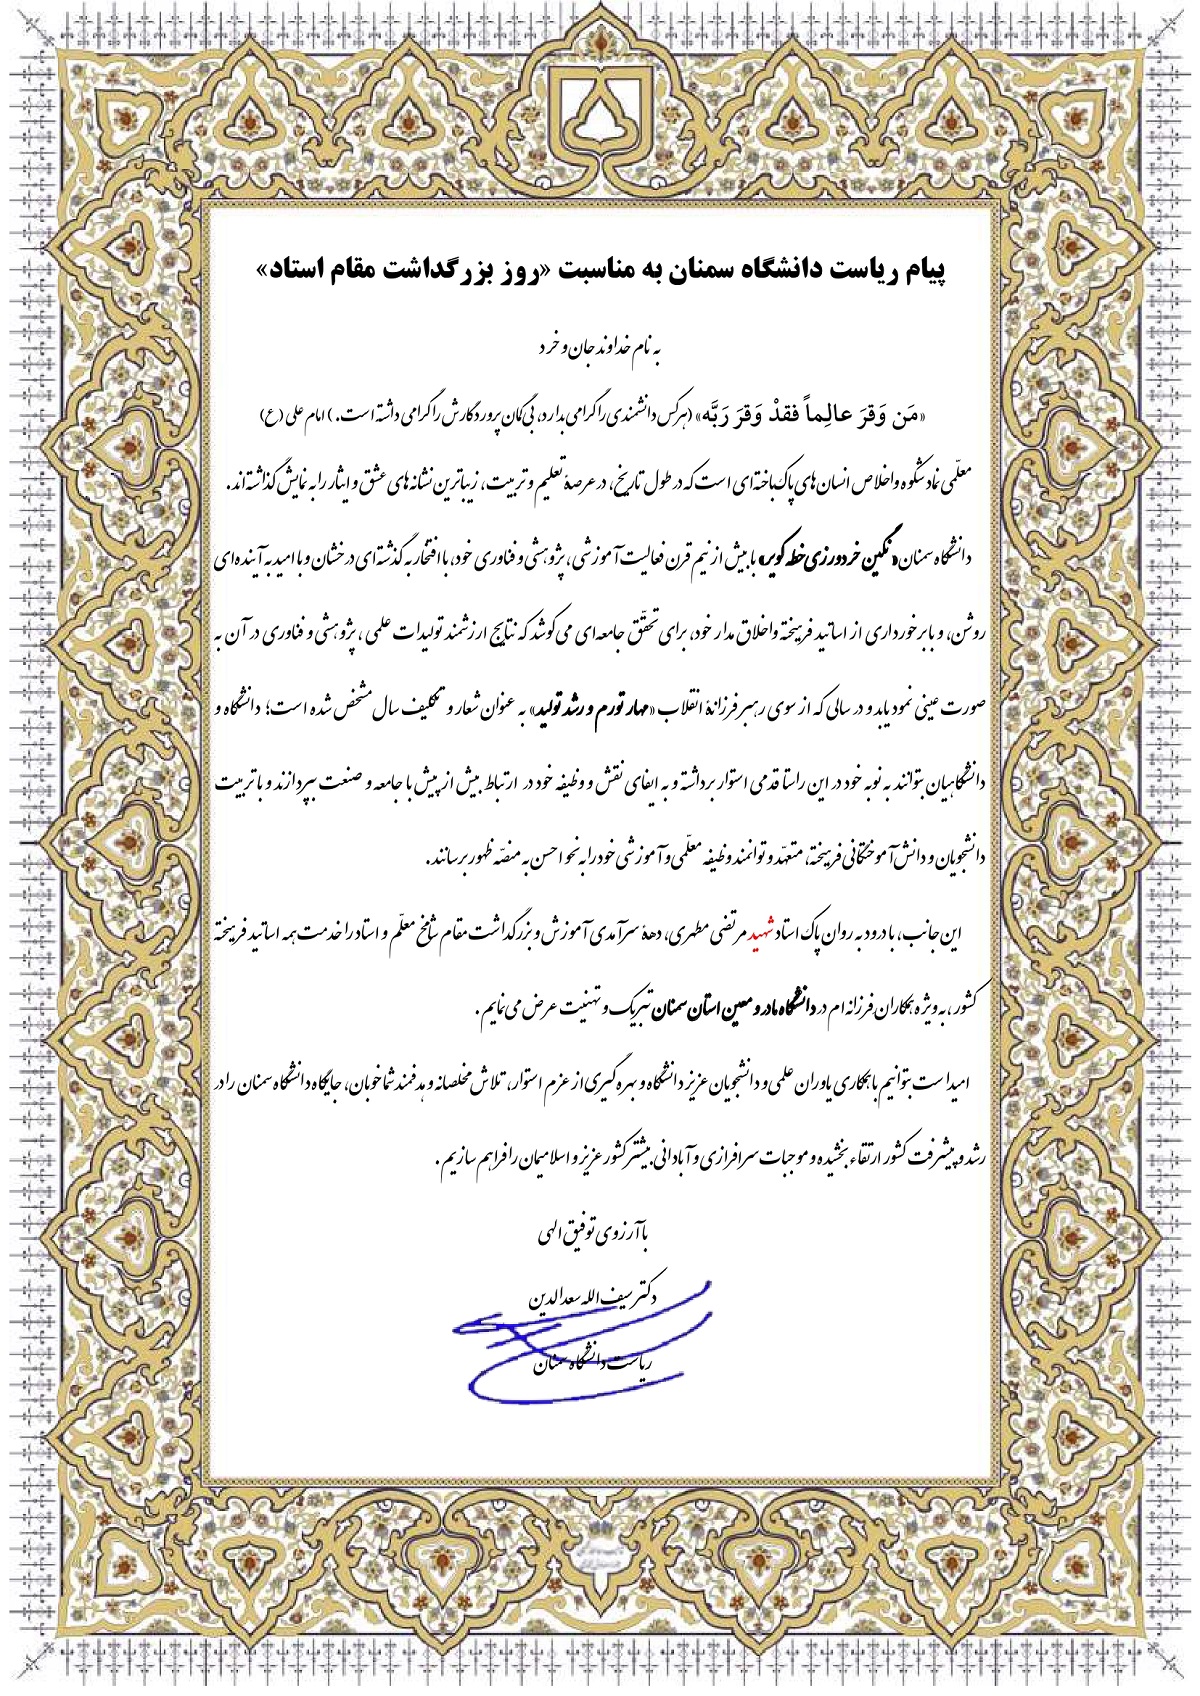 پیام ریاست دانشگاه سمنان به مناسبت «روز بزرگداشت مقام استاد»
به نام خداوند جان و خرد
«مَن وَقرَ عالِماً فقدْ وَقرَ رَبَّه» (هر کس دانشمندی را گرامی بدارد، بی‌گمان پروردگارش را گرامی داشته است. ) امام علی (ع)
معلّمی نماد شکوه و اخلاص انسان های پاک باخته ای است که در طول تاریخ، در عرصهٔ تعلیم و تربیت، زیباترین نشانه های عشق و ایثار را به نمایش گذاشته اند.
دانشگاه سمنان «نگین خردورزی خطه کویر» با بیش از نیم قرن فعالیت آموزشی، پژوهشی و فناوری خود، با افتخار به گذشته ای درخشان و با امید به آینده ای
روشن، و با برخورداری از اساتید فرهیخته و اخلاق مدار خود، برای تحقّق جامعه ای می کوشد که نتایج ارزشمند تولیدات علمی ، پژوهشی و فناوری در آن به
صورت عینی نمود یابد و در سالی که از سوی رهبر فرزانهٔ انقلاب «مهار تورم و رشد تولید» به عنوان شعار و تکلیف سال مشخص شده است؛ دانشگاه و
دانشگاهیان بتوانند به نوبه خود در این راستا قدمی استوار برداشته و به ایفای نقش و وظیفه خود در ارتباط بیش از پیش با جامعه و صنعت بپردازند و با تربیت
دانشجویان و دانش آموختگانی فرهیخته، متعهّد و توانمند وظیفه معلّمی و آموزشی خود را به نحو احسن به منصّه ظهور برسانند.
این جانب، با درود به روان پاک استاد شهید مرتضی مطهری، دههٔ سرآمدی آموزش و بزرگداشت مقام شامخ معلّم و استاد را خدمت همه اساتید فرهیخته
کشور، به ویژه همکاران فرزانه ام در دانشگاه مادر و معین استان سمنان تبریک و تهنیت عرض می نمایم .
امید است بتوانیم با همکاری یاوران علمی و دانشجویان عزیز دانشگاه و بهره گیری از عزم استوار، تلاش مخلصانه و هدفمند شما خوبان، جایگاه دانشگاه سمنان را در
رشد و پیشرفت کشور ارتقاء بخشیده و موجبات سرافرازی و آبادانی بیشتر کشور عزیز و اسلامیمان را فراهم سازیم .
با آرزوی توفیق الهی
دکتر سیف الله سعدالدین
ریاست دانشگاه سمنان